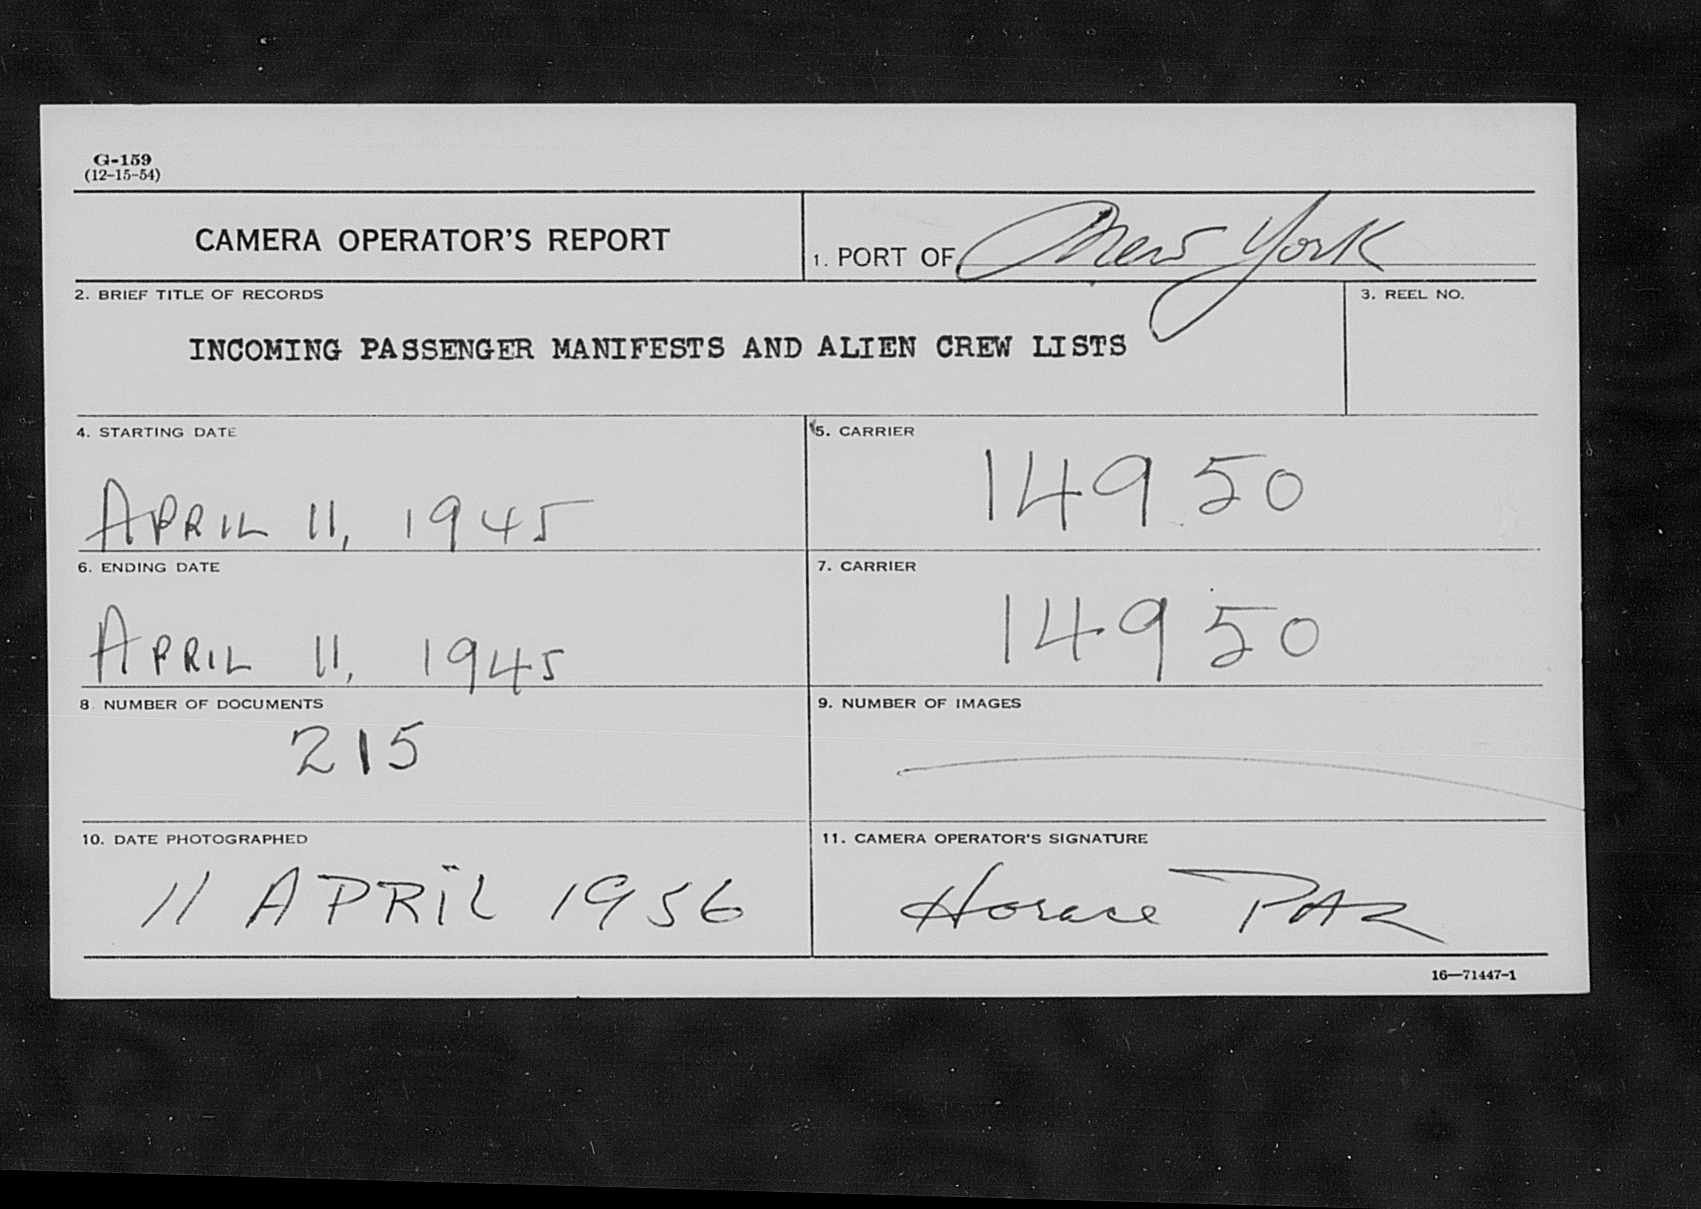 G-159
(12-15-54)
CAMERA OPERATOR'S REPORT
1. PORT OF New York
2. BRIEF TITLE OF RECORDS
3. REEL NO.
INCOMING PASSENGER MANIFESTS AND ALIEN CREW LISTS
4. STARTING DATE
5. CARRIER
14950
APRIL 11, 1945
6. ENDING DATE
7. CARRIER
14950
APRIL 11, 1945
8. NUMBER OF DOCUMENTS
9. NUMBER OF IMAGES
215
10. DATE PHOTOGRAPHED
11. CAMERA OPERATOR'S SIGNATURE
11 APRIL 1956
Horace PAR
16—71447-1